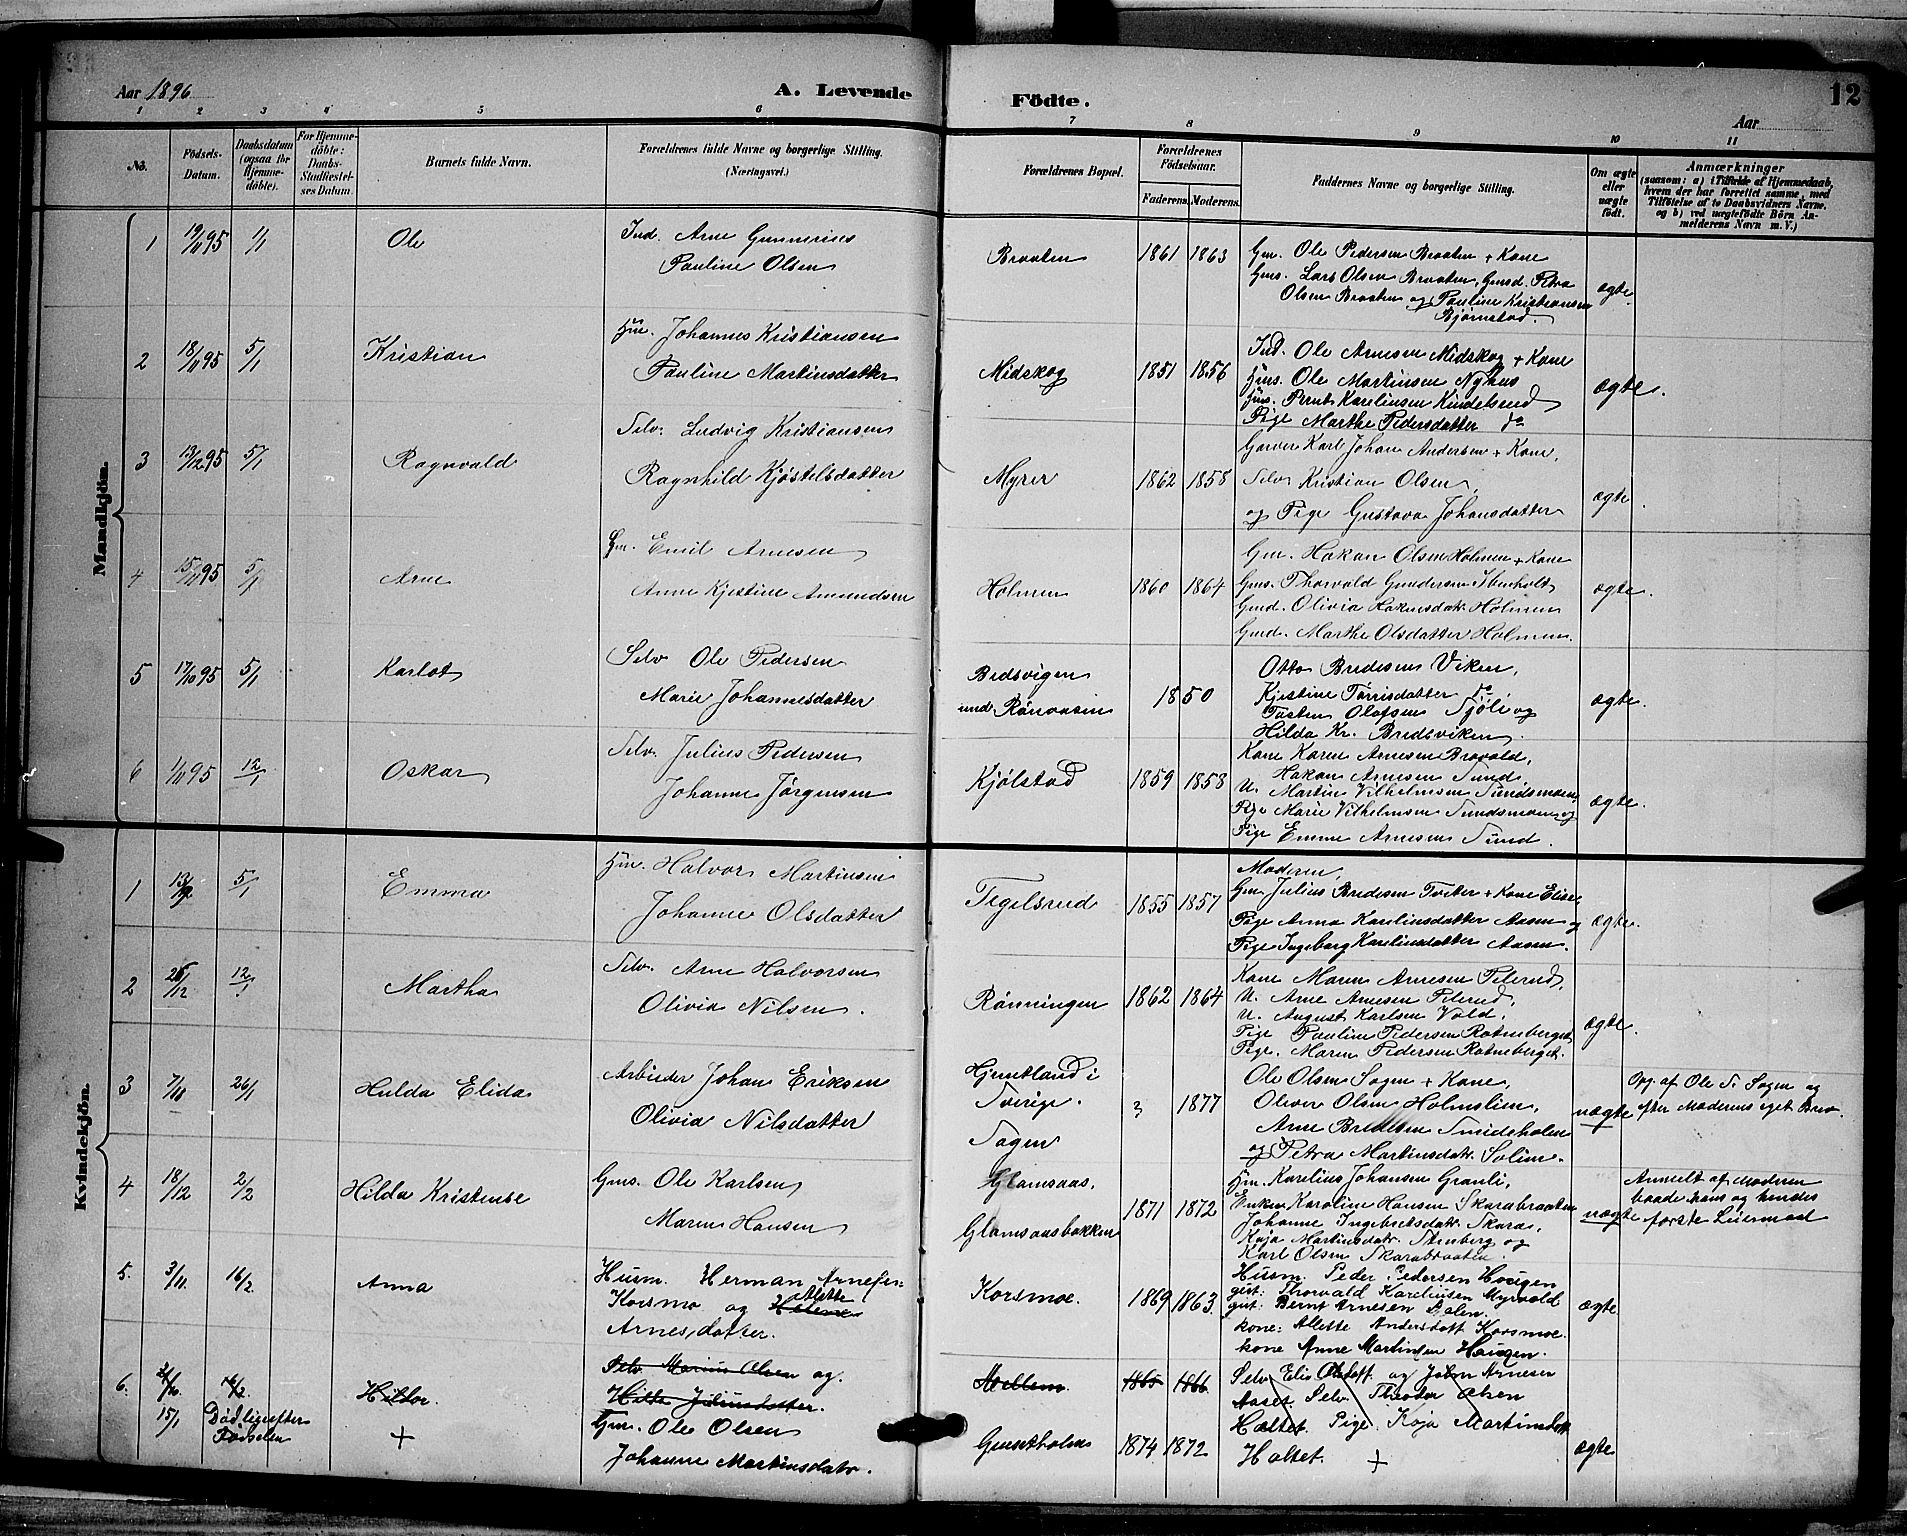 Aar 1896
A. Levende
Födte.
12
Aar
1 2 3 4 5 6 7 8 9 10 11
No.
Födsels-Datum.
Daabsdatum (ogsaa for Hjemme-döbte).
For Hjemme-döbte: Daabs-Stadfæstel-ses Datum.
Barnets fulde Navn.
Forældrenes fulde Navne og borgerlige Stilling. (Næringsvei.)
Forældrenes Bopæl.
Forældrenes Födselsaar.
Faderens. Moderens.
Faddernes Navne og borgerlige Stilling.
Om ægte eller uægte födt.
Anmærkninger
(saasom: a) i Tilfælde af Hjemmedaab, hvem der har forrettet samme, med Tilföielse af to Daabsvidners Navne, og b) ved uægtefödte Börn An-melderens Navn m. V.)
Mandkjön.
1 19/11 95 1/1 Ole
Ind. Arne Gunnerius
Pauline Olsen
Braaten 1861 1863
Gm. Ole Pedersen Braaten + Kone
Gms. Lars Olsen Braaten, Gmsd. Petra
Olsen Braaten og Pauline Kristiansen
Bjørnstad.
ægte.
2 18/11 95 5/1 Kristian
Hm. Johannes Kristiansen
Pauline Martinsdatter
Midskog 1851 1856
Ind. Ole Arnesen Midskog + Kone
Hms. Ole Martinsen Nyhus
Hms. Bernt Karelinsen Kindelsrud
Pige Marthe Pedersdatter do
ægte.
3 13/12 95 5/1 Ragnvald
Selv. Ludvig Kristiansen
Ragnhild Kjøstelsdatter
Myrer 1862 1858
Garver Karl Johan Andersen + Kone,
Selv Kristian Olsen,
og Pige Gustava Johansdatter
ægte
4 15/11 95 5/1 Arne
Gm. Emil Arnesen
Anne Kjestine Amundsen
Holmen 1860 1864
Gm. Hakon Olsen Holmen + Kone
Gms. Thorvald Gundersen Ibenholt
Gmd. Olivia Hakonsdatr. Holmen
Gmd. Marthe Olsdatter Holmen.
ægte.
5 17/10 95 5/1 Karlot
Selv Ole Pedersen
Marie Johannesdatter
Bredsvigen
und. Rönoasen
1850
Otto Bredesen Viken,
Kjestine Tørrisdatter do
Torsten Olafsen Sjöli og
Hilda Kr. Bredsviken.
ægte.
6 1/11 95 12/1 Oskar
Selv. Julius Pedersen
Johanne Jørgensen
Kjølstad 1859 1858
Kone Karen Arnesen Brovold,
Hakan Arnesen Sund,
U. Martin Vilhelmsen Sundsmoen,
Pige Marie Vilhelmsen Sundsmoen og
Pige Emma Arnesen Sund.
ægte.
Kvindekjön.
1 13/12 5/1 Emma
Hm. Halvor Martinsen
Johanne Olsdatter
Tegelsrud 1855 1857
Moderen,
Gm Julius Bredesen Tveter + Kone Elise,
Pige Anna Karelinsdatter Aasen og
Pige Ingeborg Karelinsdatter Aasen.
ægte.
2 26/12 12/1 Martha
Selv. Arne Halvorsen
Olivia Nilsen.
Rønningen 1862 1864
Kone Maren Arnesen Peterud,
U. Arne Arnesen Peterud,
U. August Karlsen Vold,
Pige Pauline Pedersen Rotneberget,
Pige. Maren Pedersen Rotneberget.
ægte.
3 7/10 26/1 Hulda Elida
Arbeider Johan Eriksen
Olivia Nilsdatter
Hjemtland i
Sverige.
Sagen
? 1877
Ole Olsen Sagen + Kone,
Oliver Olsen Holmslien,
Arne Bredesen Smideholen
og Petra Martinsdatr. Solien.
uægte
Opg. af Ole T. Sagen og
efter Moderens eget Brev.
4 18/12 2/2 Hilda Kristense
Gms. Ole Karlsen
Maren Hansen
Glamsaas,
Glamsaasbakken
1871 1872
Hm. Karelius Johansen Granli,
Enken Karoline Hansen Skarabraaten
Johanne Ingebretsdatr. Skara,
Kaja Martinsdatr. Stenberg og
Karl Olsen Skarabraaten.
uægte
Anmeldt af Moderen
baade hans og hendes
første Leiermaal
5. 3/11. 16/2. Anna
Husm. Herman Arnesen
Korsmo og Helene Alette
Arnesdatter.
Korsmoe. 1869 1863.
Husm. Peder Pedersen Hougen
gut: Thorvald Kareliusen Myrvold
gut: Bernt Arnesen Dalen.
kone: Allette Andersdatt Korsmoe.
kone Anne Martinsen Haugen.
ægte
6. 16/2. Hilda
Selv Marius Olsen og.
Hilda Juliusdatter.
Mellem. 1865 1866
Selv Elis Olsdatt. og John Arnesen
Aaset, Selv. Theodor Olsen
Haltet. Pige Kaja Martinsdatt
Haltet. +
15/1 Död lige efter Födselen +
Gm. Ole Olsen
Johanne Martinsdatr.
Grusetholen 1874 1872
ægte